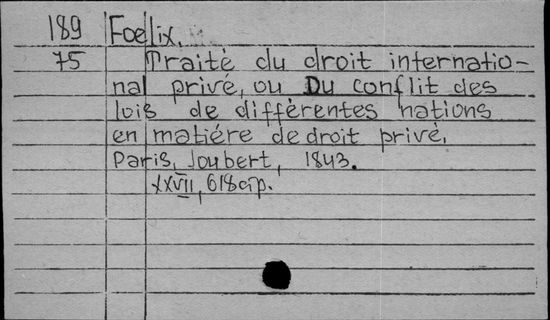 189 Foelix.
75 Traité du droit internatio-
nal privé, ou Du conflit des
lois de différentes nations
en matiére de droit privé,
Paris, Joubert, 1843.
XXVII, 618 p.